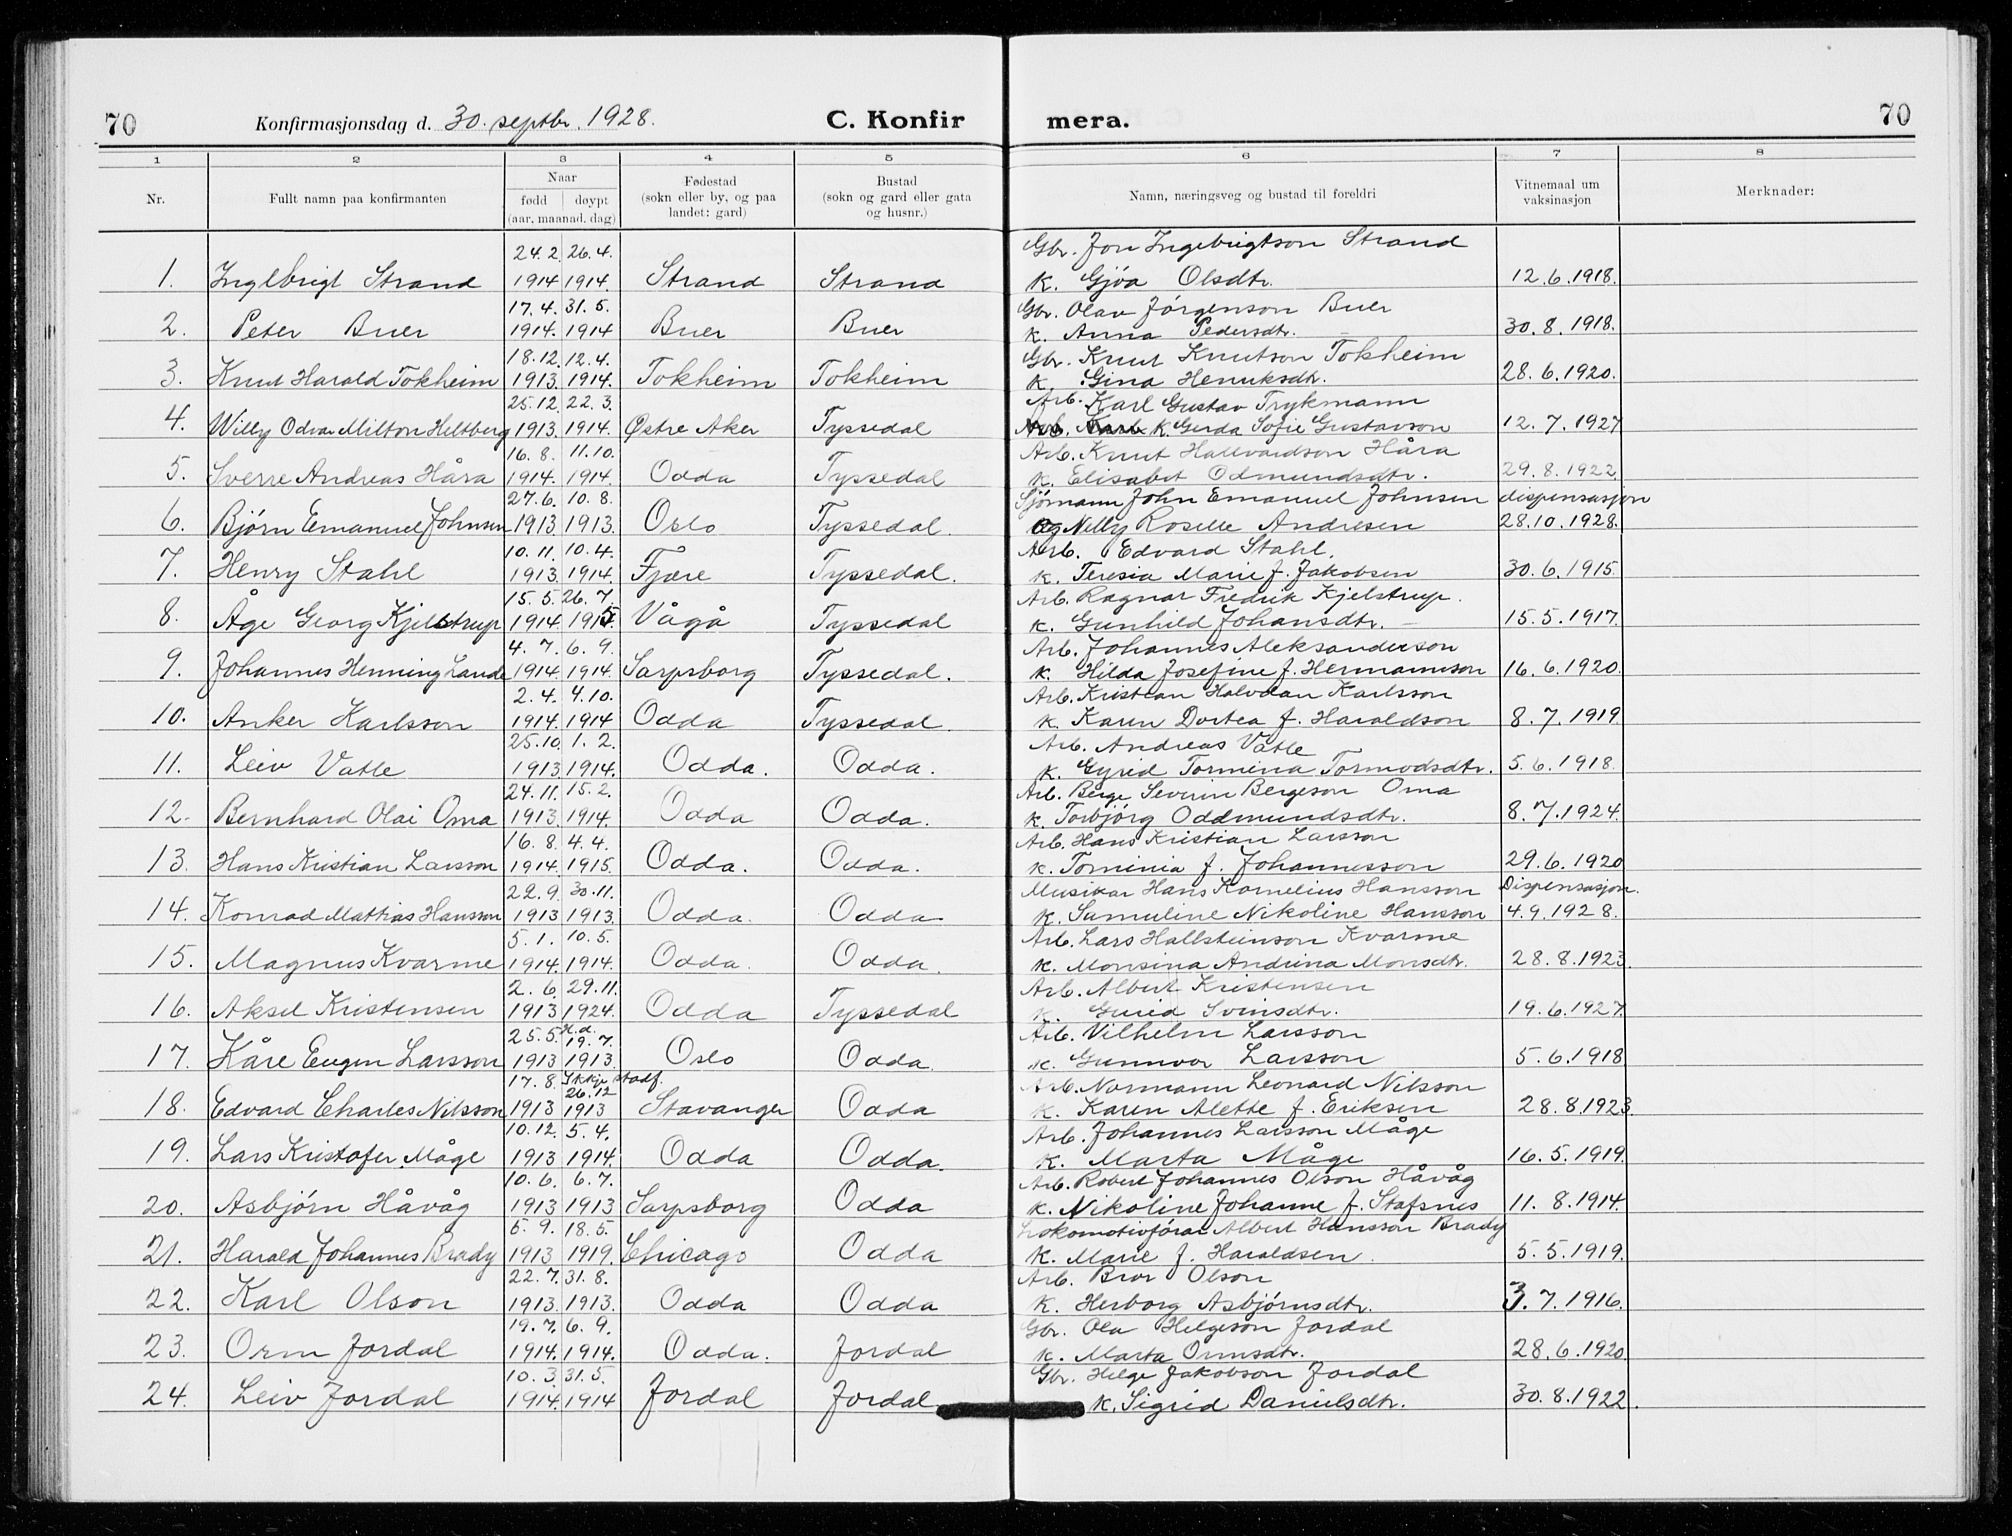 70 Konfirmasjonsdag d. 30. septbr. 1928. C. Konfir mera. 70
1 2 3 4 5 6 7 8
Nr. Fullt namn paa konfirmanten Naar fødd døypt (aar, maanad, dag) Fødestad (sokn eller by, og paa landet: gard) Bustad (sokn og gard eller gata og husnr.) Namn, næringsveg og bustad til foreldri Vitnemaal um vaksinasjon Merknader:
24.2. 26.4. Gbr. Jon Ingebrigtson Strand
1. Ingebrigt Strand 1914 1914. Strand Strand K. Gjöa Olsdtr. 12.6.1918.
17.4. 31.5. Gbr. Olav Jörgenson Buer
2. Peter Buer 1914. 1914 Buer Buer K. Anna Pedersdtr. 30.8.1918.
18.12. 12.4. Gbr. Knut Knutson Tokheim
3. Knut Harald Tokheim 1913. 1914. Tokheim Tokheim K. Gina Henriksdtr. 28.6.1920.
25.12. 22.3. Arb. Karl Gustav Trykmann
4. Willy Odvar Milton Heltberg 1913. 1914. Østre Aker Tyssedal K. Gerda Sofie Gustavson 12.7.1927
16.8. 11.10. Arb. Knut Hallvardson Håra
5. Sverre Andreas Håra 1914. 1914. Odda Tyssedal K. Elisabet Odmundsdtr. 29.8.1922.
27.6. 10.8. Sjömann John Emanuel Johnsen dispensasjon
6. Björn Emanuel Johnsen 1913. 1913. Oslo Tyssedal. og Nelly Roselle Andresen 28.10.1928.
10.11. 10.4. Arb. Edvard Stahl.
7. Henry Stahl 1913. 1914. Fjære Tyssedal. K. Teresia Marie f. Jakobsen 30.6.1915.
15.5. 26.7. Arb. Ragnar Fredrik Kjelstrup.
8. Åge Georg Kjelstrup 1914. 1915. Vågå Tyssedal K. Gunhild Johansdtr. 15.5.1917.
4.7. 6.9. Arb. Johannes Aleksanderson
9. Johannes Henning Lande 1914. 1914. Sarpsborg Tyssedal. K. Hilda Josefine f. Hermannson 16.6.1920.
2.4. 4.10. Arb. Kristian Halvdan Karlsson
10. Anker Karlsson 1914. 1914 Odda Tyssedal. K. Karen Dortea f. Haraldson 8.7.1919.
25.10. 1.2. Arb. Andreas Vatle
11. Leiv Vatle 1913. 1914. Odda. Odda. K. Gyrid Tormina Tormodsdtr. 5.6.1918.
24.11. 15.2. Arb. Berge Severin Bergeson Oma
12. Bernhard Olai Oma 1913. 1914. Odda Odda. K. Torbjörg Oddmundsdtr. 8.7.1924.
16.8. 4.4. Arb. Hans Kristian Larsson
13. Hans Kristian Larsson 1914. 1915. Odda. Odda. K. Tominia f. Johannesson 29.6.1920
22.9. 30.11. Musikar Hans Kornelius Hansson Dispensasjon.
14. Konrad Mattias Hansson 1913 1913. Odda. Odda K. Samuline Nikoline Hansson 4.9.1928.
5.1. 10.5. Arb. Lars Hallsteinson Kvarme
15. Magnus Kvarme 1914. 1914. Odda. Odda. K. Monsina Andrina Monsdtr. 28.8.1923.
2.6. 29.11. Arb. Albert Kristensen
16. Aksel Kristensen 1913 1924. Odda Tyssedal K. Gurid Svinsdtr. 19.6.1927.
25.5. H.d. 19.7. Arb. Vilhelm Larsson
17. Kåre Eugen Larsson 1913 1913. Oslo Odda. K. Gunnvor Larsson 5.6.1918
17.8. Ikkje stadf. 26.12 Arb. Normann Leonard Nilsson
18. Edvard Charles Nilsson 1913 1913 Stavanger Odda K. Karen Alette f. Eriksen 28.8.1923.
10.12. 5.4. Arb. Johannes Larsson Måge
19. Lars Kristofer Måge 1913 1914. Odda Odda. K. Marta Måge 16.5.1919.
10.6. 6.7. Arb. Robert Johannes Olson Håvåg
20. Asbjörn Håvåg 1913 1913 Sarpsborg Odda K. Nikoline Johanne f. Stafsnes 11.8.1914.
5.9. 18.5. Lokomotivförar Albert Hansson Brady
21. Harald Johannes Brady 1913 1919. Chicago Odda K. Marie f. Haraldsen. 5.5.1919.
22.7. 31.8. Arb. Bror Olson
22. Karl Olson 1913. 1913. Odda Odda K. Herborg Asbjörnsdtr. 3.7.1916.
19.7. 6.9. Gbr. Ola Helgeson Jordal
23. Orm Jordal 1914. 1914. Odda. Jordal K. Marta Ormsdtr. 28.6.1920.
10.3. 31.5. Gbr. Helge Jakobson Jordal
24. Leiv Jordal 1914. 1914 Jordal Jordal K. Sigrid Danielsdtr. 30.8.1922.